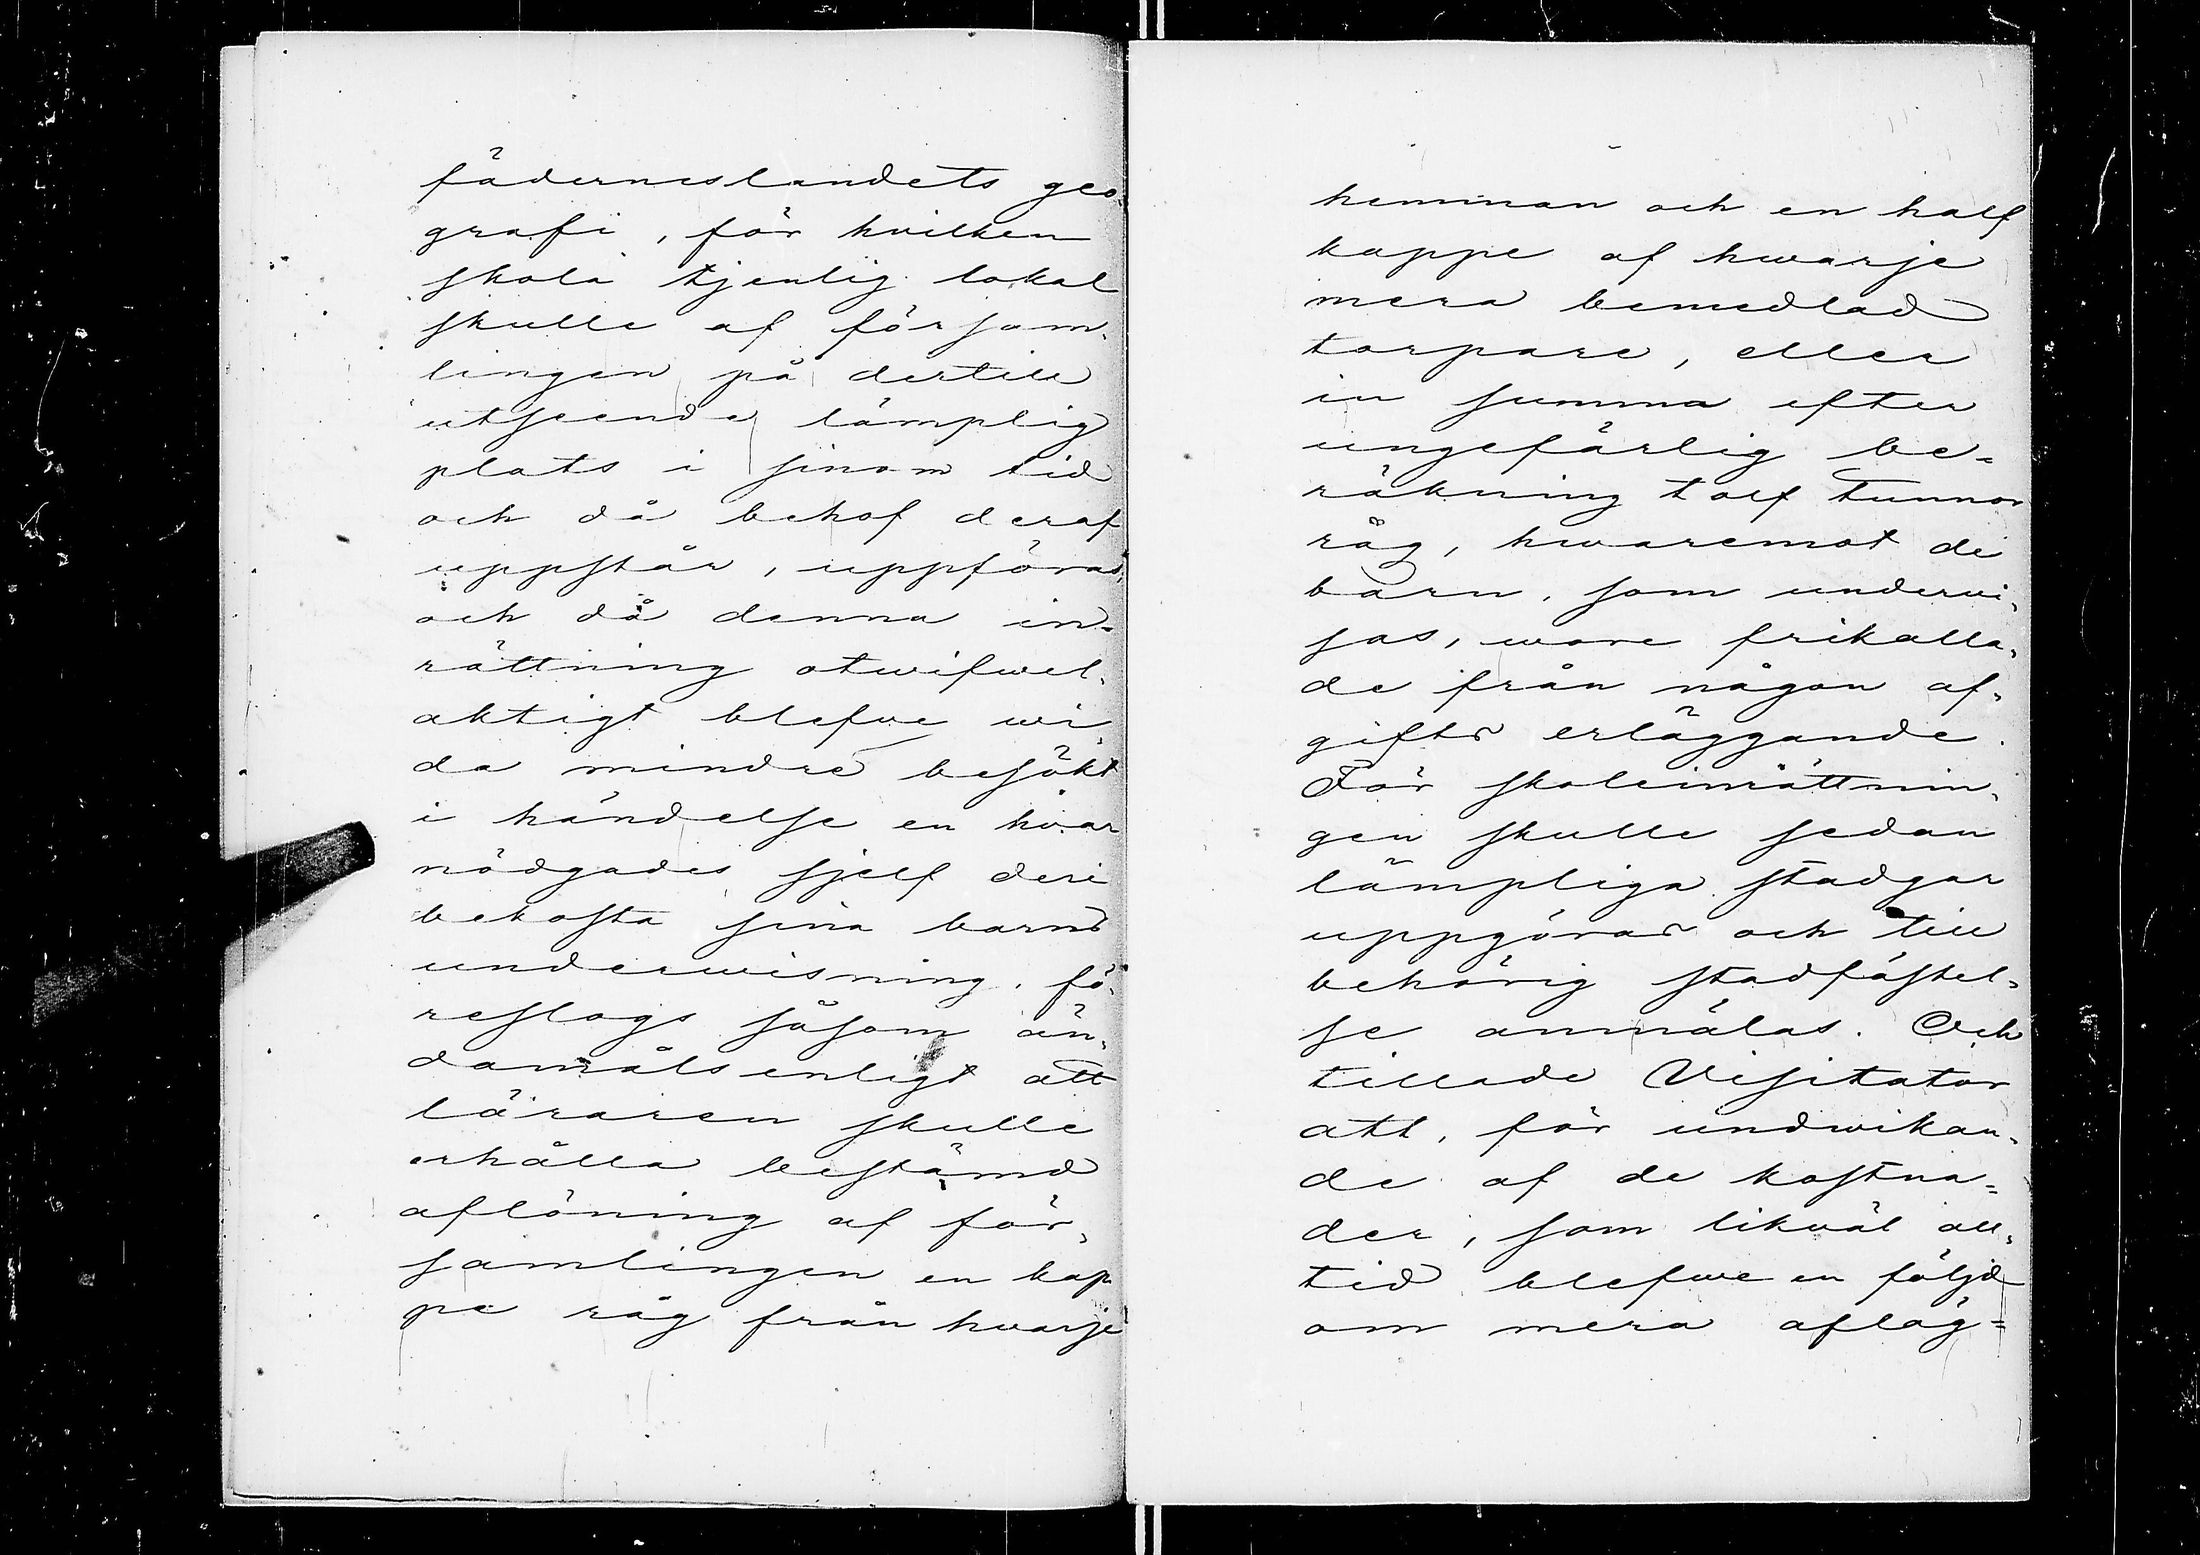 fäderneslandets geo-
grafi, för hvilken
skola tjenlig lokal
skulle af försam-
lingen på dertill
utseende lämplig
plats i sinom tid
och då behof deraf
uppstår, uppföras,
och då denna in-
rättning otwifwel-
aktigt blefve wi-
da mindre besökt
i händelse en hvar
nödgades sjelf deri
bekosta sina barns
underwisning, fö-
reslogs såsom än-
damålsenligt att
läraren skulle
erhålla bestämd
aflöning af för-
samlingen en kap
pe råg från hwarje
hemman och en half
kappe af hwarje
mera bemedlad
torpare, eller
in summa efter
ungefärlig be-
räkning tolf tunnor
råg, hwaremot de
barn, som undervi-
sas, wore frikalla-
de från någon af-
gifts erläggande.
För skoleinrättnin-
gen skulle sedan
lämpliga stadgar
uppgöras och till
behörig stadfästel-
se anmälas. Och
tillade Visitator
att, för undwikan-
de af de kostna-
der, som likväl all-
tid blefwe en följd
om mera afläg-